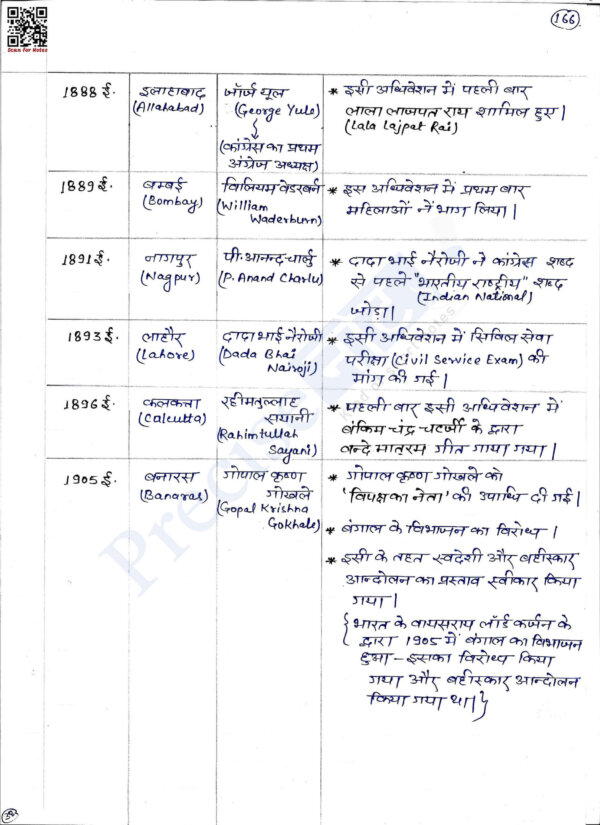 166
Scan for Notes
1888 ई.
इलाहाबाद
(Allahabad)
जॉर्ज यूल
(George Yule)
(कांग्रेस का प्रथम
अंग्रेज अध्यक्ष)
* इसी अधिवेशन में पहली बार
लाला लाजपत राय शामिल हुए।
(Lala Lajpat Rai)
1889 ई.
बम्बई
(Bombay)
विलियम वेडरबर्न
(William
Waderburn)
* इस अधिवेशन में प्रथम बार
महिलाओं नें भाग लिया।
1891 ई.
नागपुर
(Nagpur)
पी. आनन्द चार्लु
(P. Anand Charlu)
* दादा भाई नैरोजी ने कांग्रेस शब्द
से पहले "भारतीय राष्ट्रीय" शब्द
(Indian National)
जोड़ा।
1893 ई.
लाहौर
(Lahore)
दादा भाई नैरोजी
(Dada Bhai
Nairoji)
* इसी अधिवेशन में सिविल सेवा
परीक्षा (Civil Service Exam) की
मांग की गई।
1896 ई.
कलकत्ता
(Calcutta)
रहीमतुल्लाह
सयानी
(Rahimtullah
Sayani)
* पहली बार इसी अधिवेशन में
बंकिम चंद्र चटर्जी के द्वारा
वन्दे मातरम गीत गाया गया।
1905 ई.
बनारस
(Banaras)
गोपाल कृष्ण
गोखले
(Gopal Krishna
Gokhale)
* गोपाल कृष्ण गोखले को
'विपक्ष का नेता' की उपाधि दी गई।
* बंगाल के विभाजन का विरोध।
* इसी के तहत स्वदेशी और बहीस्कार
आन्दोलन का प्रस्ताव स्वीकार किया
गया।
{भारत के वायसराय लॉर्ड कर्जन के
द्वारा 1905 में बंगाल का विभाजन
हुआ - इसका विरोध किया
गया और बहीस्कार आन्दोलन
किया गया था।}